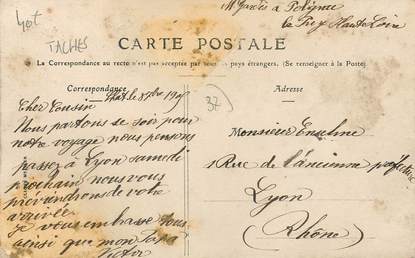 40t
TACHES
M Garde à Polignac
Le Puy Haute Loire
CARTE POSTALE
La Correspondance au recto n'est pas acceptée par tous les pays étrangers. (Se renseigner à la Poste)
Correspondance
Adresse
32
le 8bre
Cher Cousin
Nous partons ce soir pour
notre voyage nous pensons
passer à Lyon samedi
prochain nous vous
préviendrons de votre
arrivée
Je vous embrasse tous
ainsi que mon papa
Victor
Monsieur Enselme
1 Rue de l'ancienne préfecture
Lyon
(Rhône)